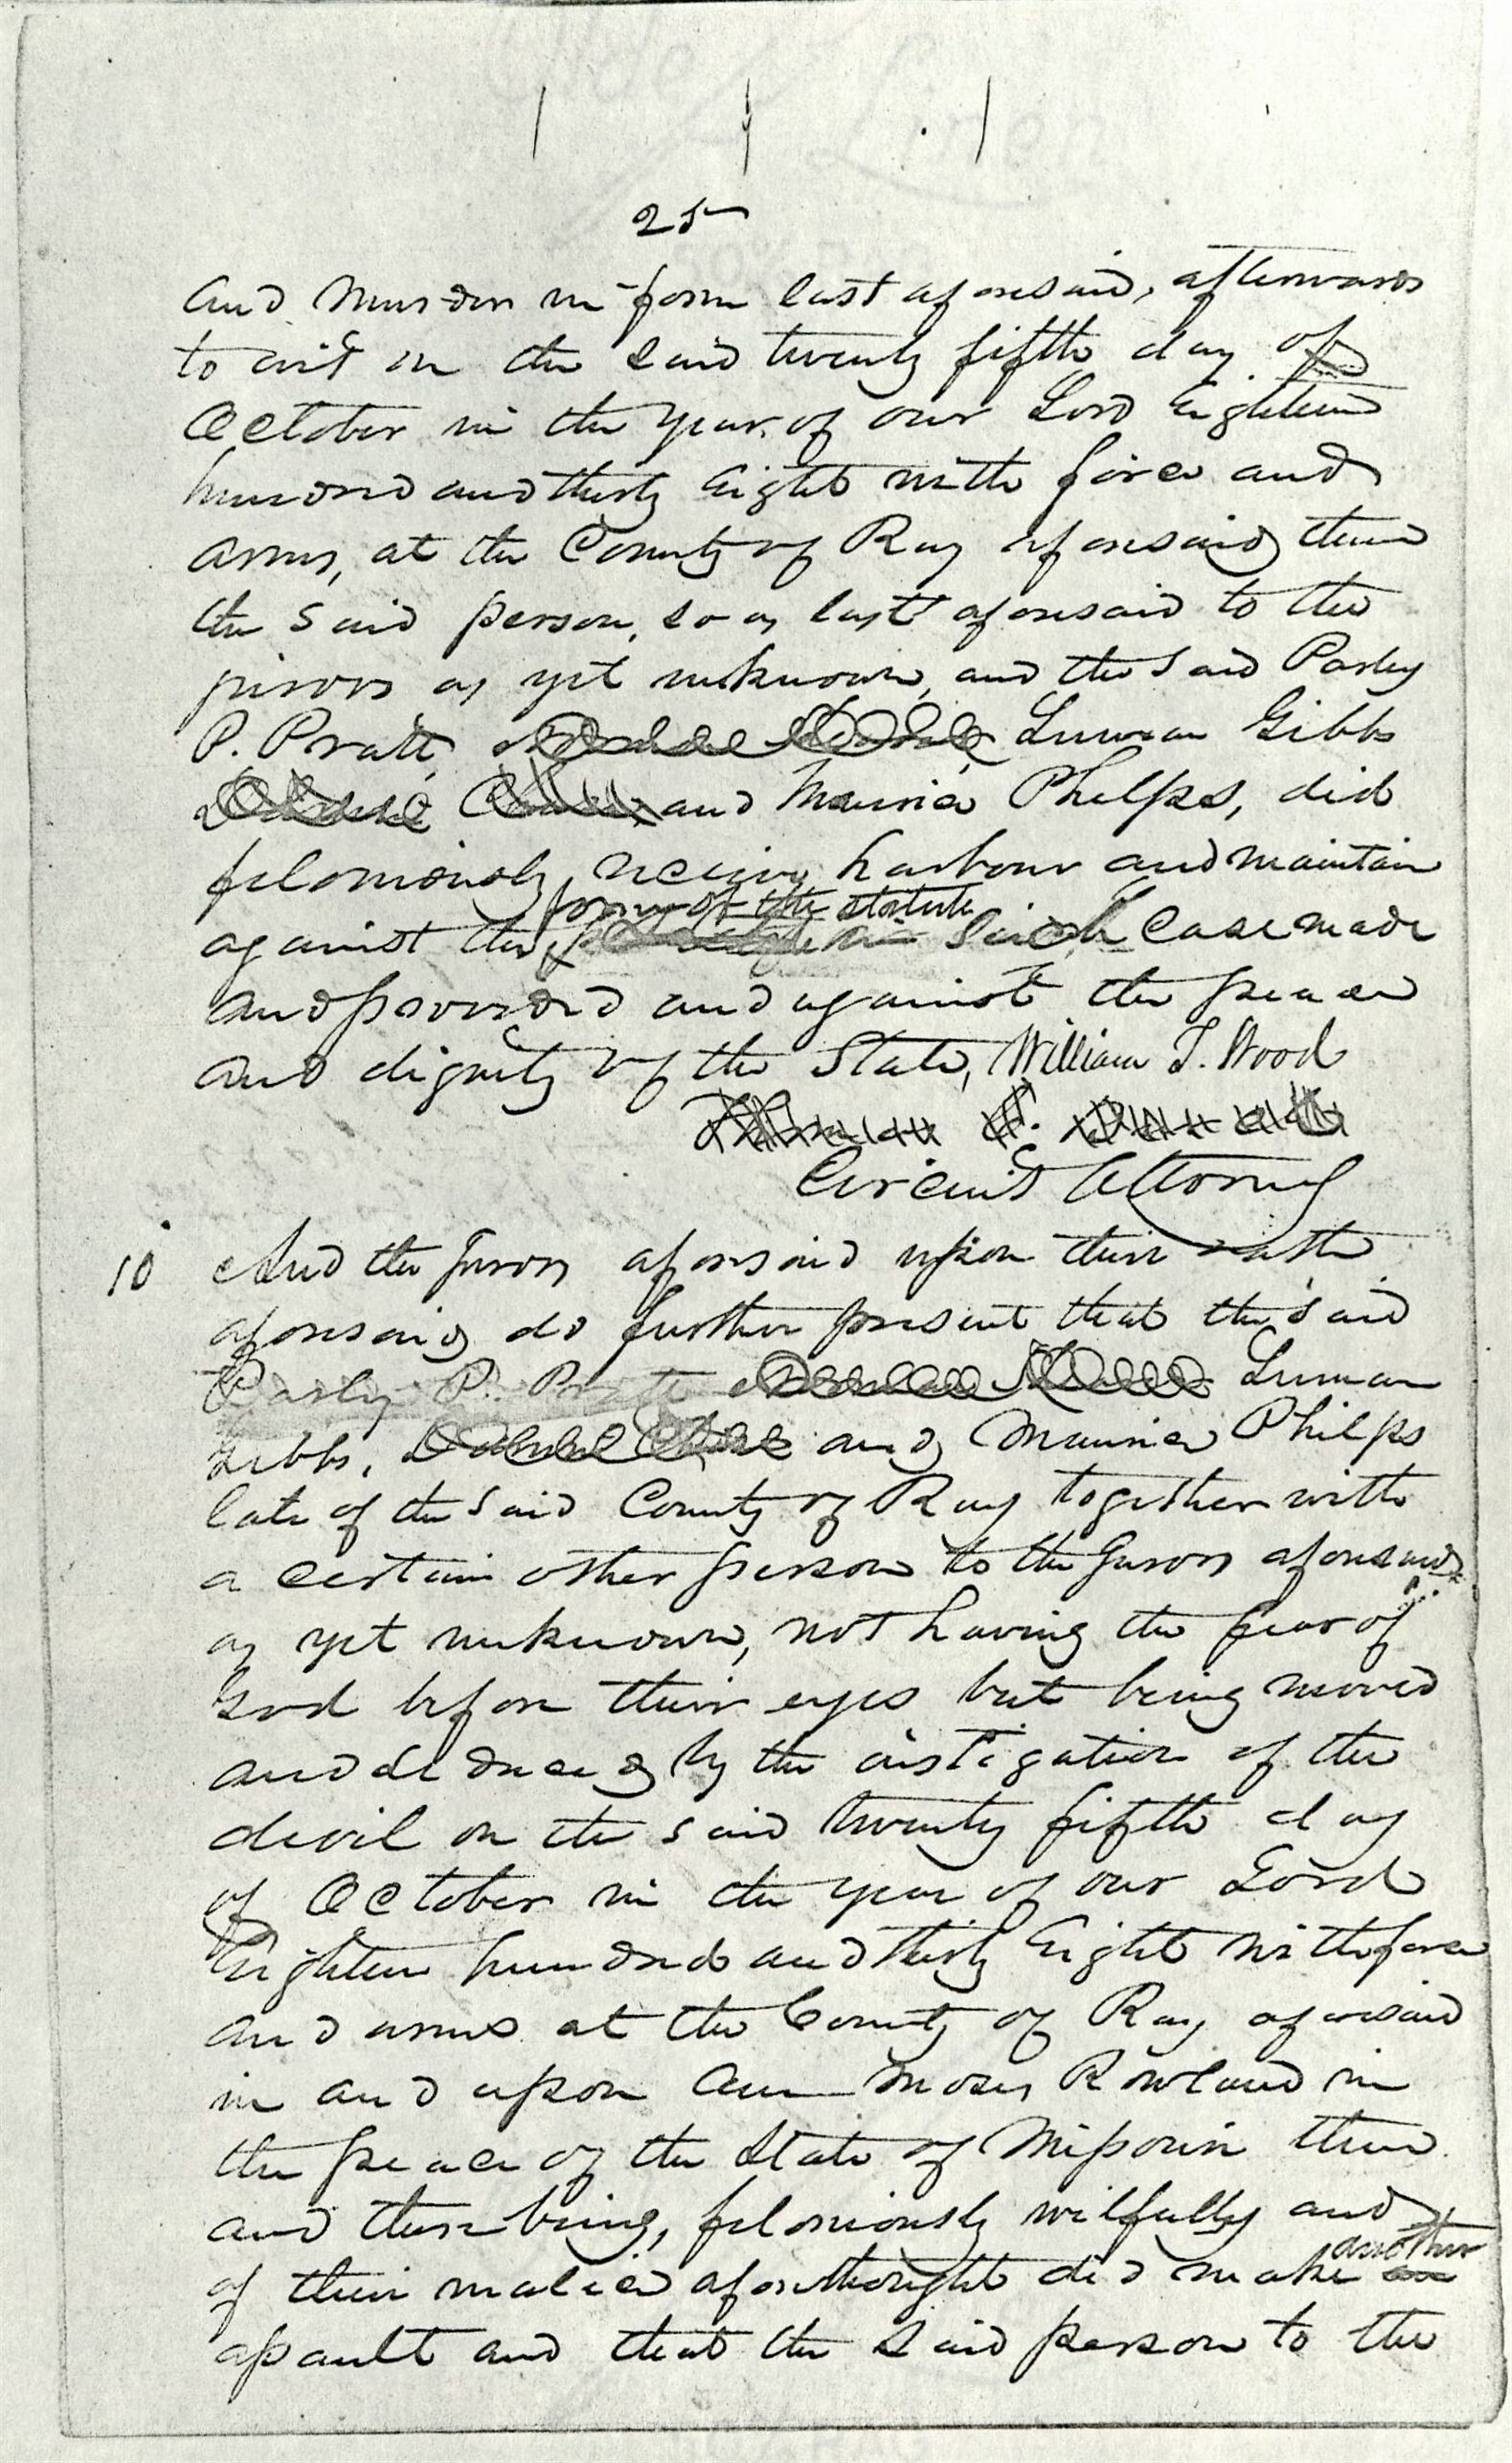 25
and Murder in form last aforesaid, afterwards
to wit on the said twenty fifth day of
October in the year of our Lord Eighteen
hundred and thirty Eight with force and
arms, at the County of Ray aforesaid them
the said person, so as last aforesaid to the
jurors as yet unknown, and the said Parley
P. Pratt, Luman Gibbs
and Maurice Phelps, did
feloniously receive, harbour and maintain
form of the statute
against the in such case made
and provided and against the peace
and dignity of the State, William T. Wood
Thomas C. Burch
Circuit Attorney
10 And the Jurors aforesaid upon their oath
aforesaid do further present that the said
Parley P. Pratt Luman
Gibbs, and Maurice Phelps
late of the said County of Ray together with
a certain other person to the Jurors aforesaid
as yet unknown, not having the fear of
God before their eyes but being moved
and seduced by the instigation of the
devil on the said twenty fifth day
of October in the year of our Lord
Eighteen hundred and thirty Eight with force
and arms at the County of Ray aforesaid
in and upon one Moses Rowland in
the peace of the State of Missouri then
and there being, feloniously wilfully and
another
of their malice aforethought did make an
assault and that the said person to the